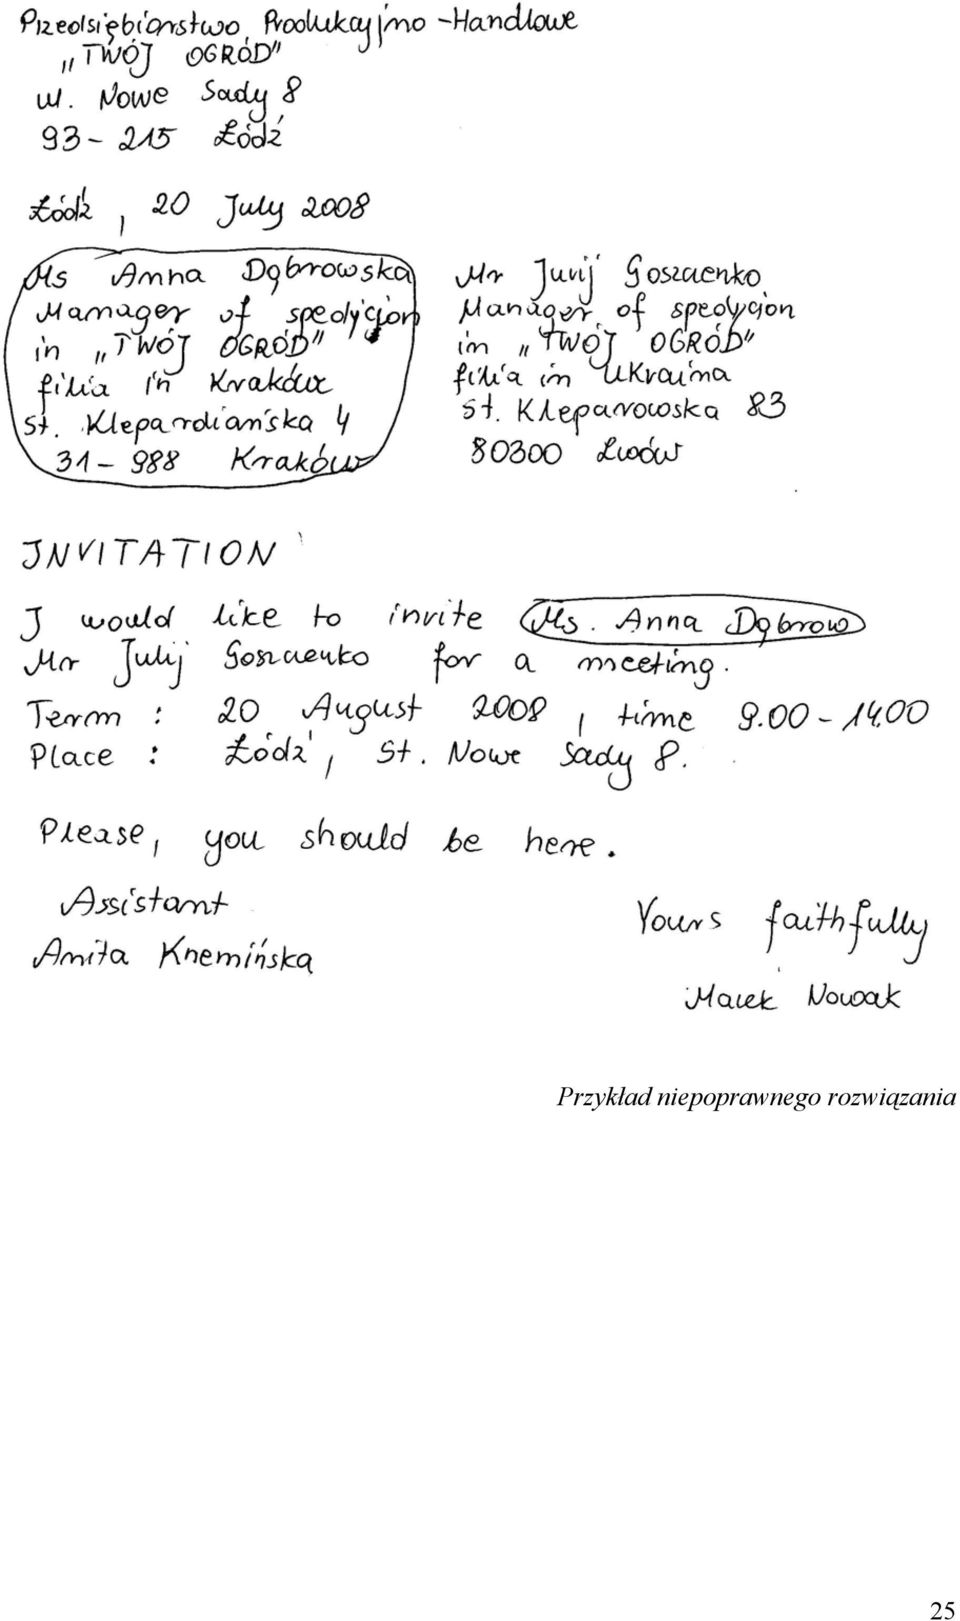 Przedsiębiorstwo Produkcyjno-Handlowe
„TWÓJ OGRÓD"
ul. Nowe Sady 8
93-215 Łódź
Łódź, 20 July 2008
Ms Anna Dąbrowska
Manager of spedycion
in „TWÓJ OGRÓD"
filia in Kraków
St. Klepardiańska 4
31-988 Kraków
Mr Jurij Goszczenko
Manager of spedycion
in „TWÓJ OGRÓD"
filia in Ukraina
St. Kleparowska 83
80300 Lwów
INVITATION
I would like to invite Ms. Anna Dąbrow
Mr Julij Goszczenko for a meeting.
Term : 20 August 2008, time 9.00-14.00
Place : Łódź, St. Nowe Sady 8.
Please, you should be here.
Assistant
Anita Knemińska
Yours faithfully
Marek Nowak
Przykład niepoprawnego rozwiązania
25